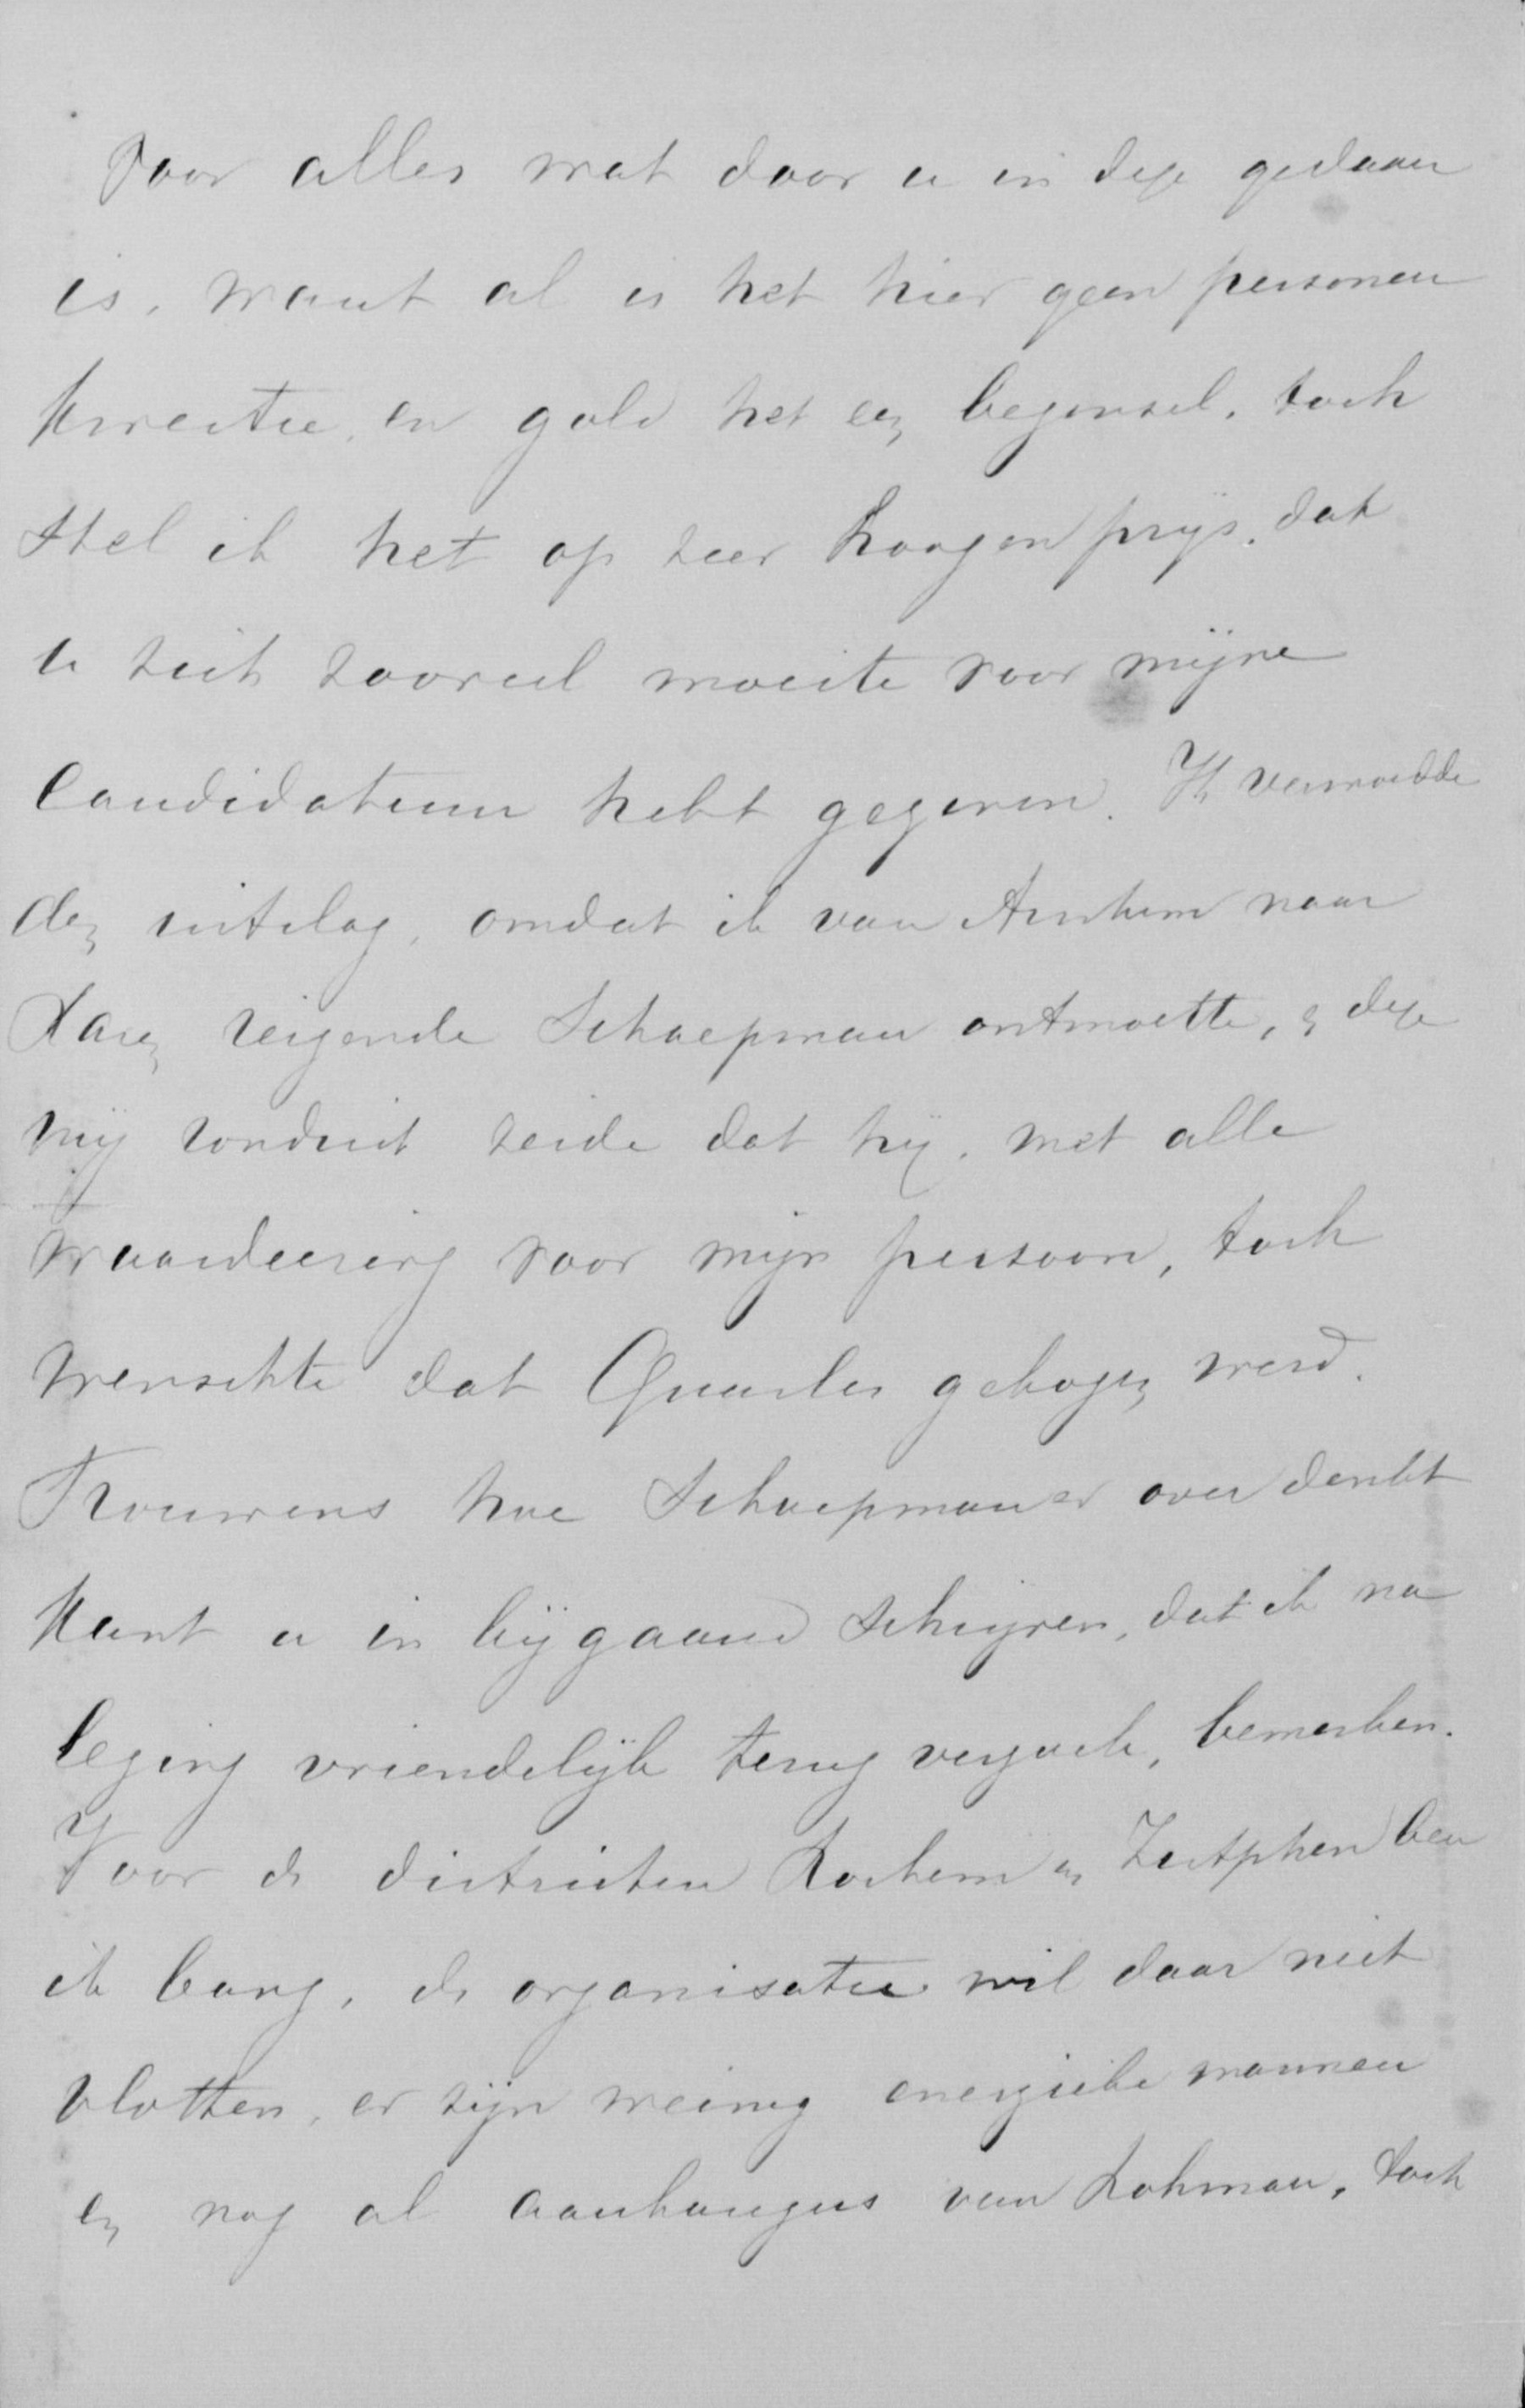 Voor alles wat door u in deze gedaan
is, want al is het hier geen personen
kwestie, en gold het een beginsel, toch
stel ik het op zeer hoogen prijs, dat
u zich zooveel moeite voor mijne
Candidatuur hebt gegeven. Ik vermoedde
den uitslag, omdat ik van Arnhem naar
reizende Schaepman ontmoette, en deze
mij ronduit zeide dat hij, met alle
waardeering voor mijn persoon, toch
wenschte dat Quarles gekozen werd.
Trouwens hoe Schaepman er over denkt
kunt u in bijgaand schrijven, dat ik na
lezing vriendelijk terug verzoek, bemerken.
Voor de districten Lochem en Zutphen ben
ik bang, de organisatie wil daar niet
vlotten, er zijn weinig energieke mannen
en nog al aanhangers van Lohman, toch